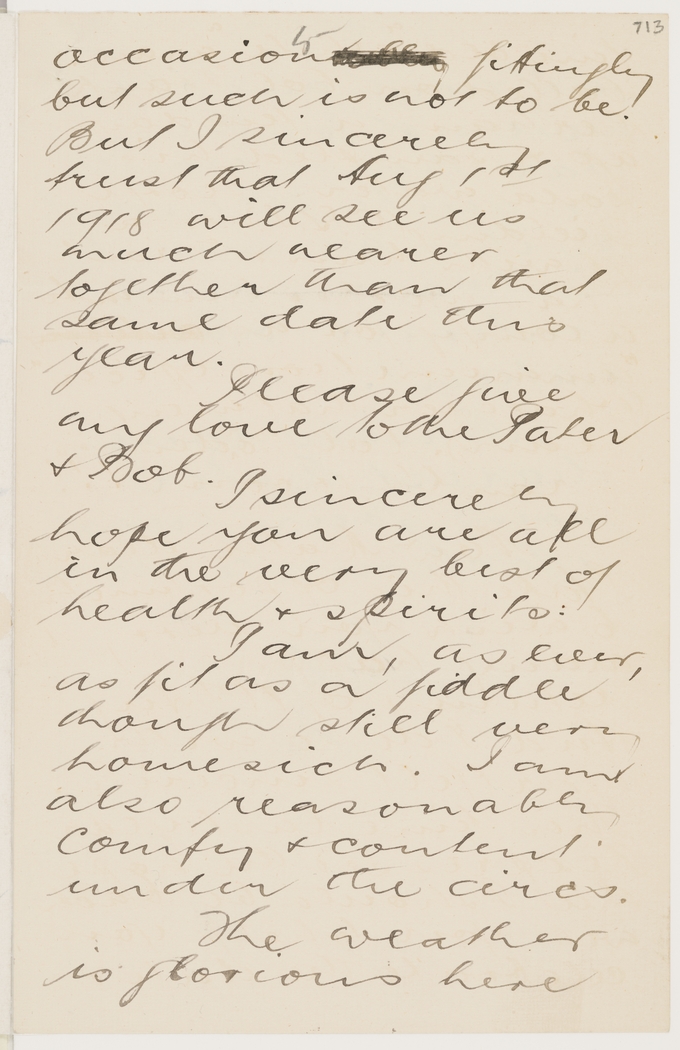 713
5
occasion fittingly
but such is not to be.
But I sincerely
trust that Aug 1st
1918 will see us
much nearer
together than that
same date this
year.
Please give
my love to the Pater
& Bob.
I sincerely
hope you are all
in the very best of
health & spirits:
I am, as ever,
as fit as a fiddle
though still very
homesick. I am
also reasonably
comfy & content
under the circs.
The weather
is glorious here